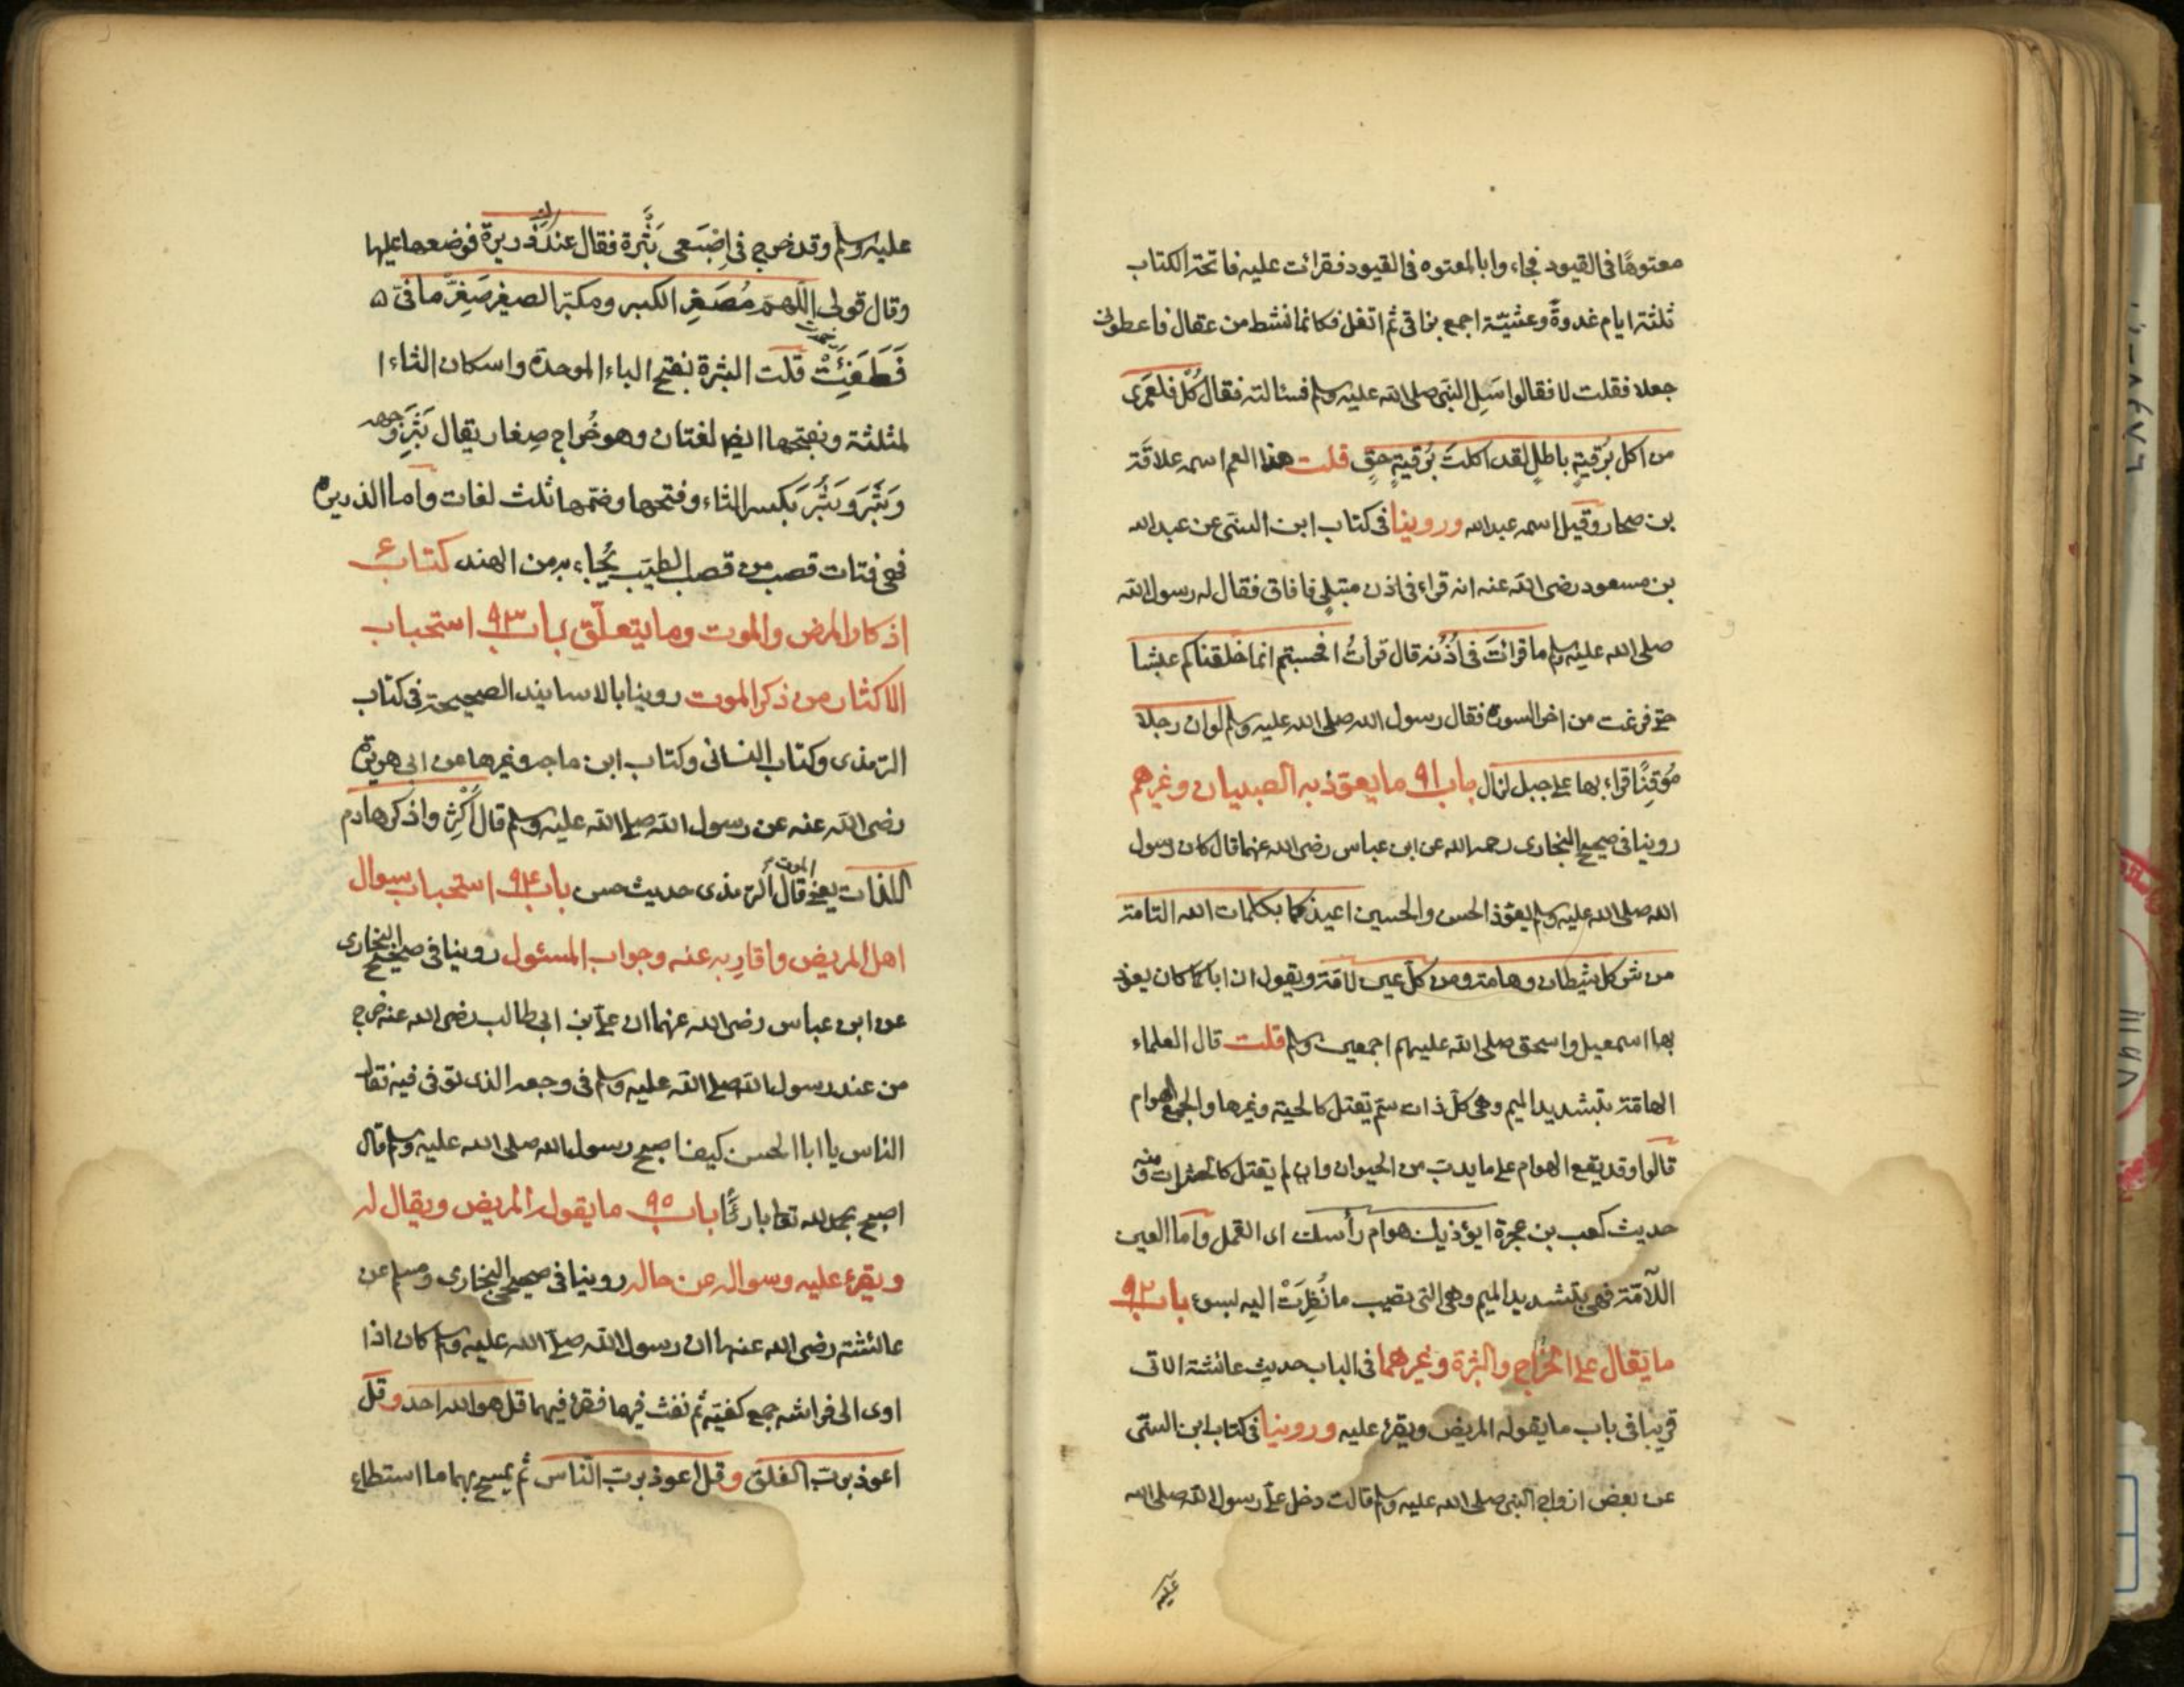 معتوهًا في القيود فجاءوا بالمعتوه في القيود فقرائت عليه فاتحة الكتاب
ثلثة ايام غدوةً وعشيّة اجمع بزاقي ثم اتفل فكانما نشط من عقال فاعطوني
جعلا فقلت لا فقالوا سَلِ النبي صلى الله عليه وسلم فسئالته فقال كُل فلعَمرى
من اكل بُرقيةٍ باطلٍ لقد اكلتَ بُرقيةٍ حقٍ قلت هذا العم اسمه علاقَة
بن صحار وقيل اسمه عبدالله وروينا في كتاب ابن السنّى عن عبدالله
بن مسعود رضى الله عنه انه قراء في اذن مبتلٍي فافاق فقال له رسول الله
صلى الله عليه وسلم ما قرائتَ في اُذُنه قال قرأتُ افحسبتم انما خلقناكم عبثا
حتى فرغت من اخر السورة فقال رسول الله صلى الله عليه وسلم لو ان رجلا
مُوقنًا قراء بها على جبل لزال باب ٩١ ما يعوّذ به الصبيان وغيرهم
روينا في صحيح البخارى رحمه الله عن ابن عباس رضى الله عنهما قال كان رسول
الله صلى الله عليه وسلم يعوّذ الحسن والحسين اعيذكما بكلمات الله التامة
من شر كل شيطان وهامة ومن كلّ عين لامّة ويقول ان اباكما كان يعوذ
بها اسمعيل واسحق صلى الله عليهم اجمعين وسلم قلت قال العلماء
الهامّة بتشديد الميم وهى كلّ ذات سمّ تقتل كالحية وغيرها والجمع الهوام
قالوا وقد يقع الهوام على ما يدبّ من الحيوان وان لم يقتل كالحشرات ومنه
حديث كعب بن عجرة ايؤذيك هوام رأسك اى القمل واما العين
اللّامّة فهى بتشديد الميم وهى التى تصيب ما نُظِرَتْ اليه بسوء باب ٩٢
ما يقال على الخُراج والبثرة وغيرهما في الباب حديث عائشة الاتى
قريبا في باب ما يقوله المريض ويقرئ عليه وروينا في كتاب ابن السنّى
عن بعض ازواج النبي صلى الله عليه وسلم قالت دخل علىّ رسول الله صلى الله
عليه
عليه وسلم وقد خرج في اِصْبَعى بَثْرة فقال عندكِ ذريرة فوضعها عليها
وقال قولى اللّهمّ مُصَغِر الكبير ومكبّر الصغير صَغِرْ ما في
فَطَفِئَتْ قلت البثرة بفتح الباء الموحدة واسكان الثاء ا
لمثلثة وبفتحها ايضا لغتان وهو خُراج صِغار يقال بَثِرَ وجهه
وبَثَرَ وبَثُرَ بكسر الثاء وفتحها وضمّها ثلث لغات وامّا الذريرة
فهى فتات قصب من قصب الطيب يُجاء به من الهند كتاب
اذكار المرض والموت وما يتعلّق بها باب ٩٣ استحباب
الاكثار من ذكر الموت روينا بالاسانيد الصحيحة في كتاب
الترمذى وكتاب النسائى وكتاب ابن ماجه وغيرها عن ابى هريرة
رضى الله عنه عن رسول الله صلى الله عليه وسلم قال اَكْثِروا ذكر هادم
اللذات يعنى الموت قال الترمذى حديث حسن باب ٩٤ استحباب سوال
اهل المريض واقاربه عنه وجواب المسئول روينا في صحيح البخارى
عن ابن عباس رضى الله عنهما ان علىّ بن ابى طالب رضى الله عنه خرج
من عند رسول الله صلى الله عليه وسلم في وجعه الذى توفى فيه فقال
الناس يا ابا الحسن كيف اصبح رسول الله صلى الله عليه وسلم قال
اصبح بحمد لله تعا بارئًا باب ٩٥ ما يقول المريض ويقال له
ويقرئ عليه وسواله عن حاله روينا في صحيحى البخارى ومسلم عن
عائشة رضى الله عنها ان رسول الله صلى الله عليه وسلم كان اذا
اوى الى فراشه جمع كفيّه ثم نفث فيهما فقرئ فيهما قل هو الله احد وقل
اعوذ بربّ الفلق وقل اعوذ بربّ النّاس ثم يمسح بهما ما استطاع